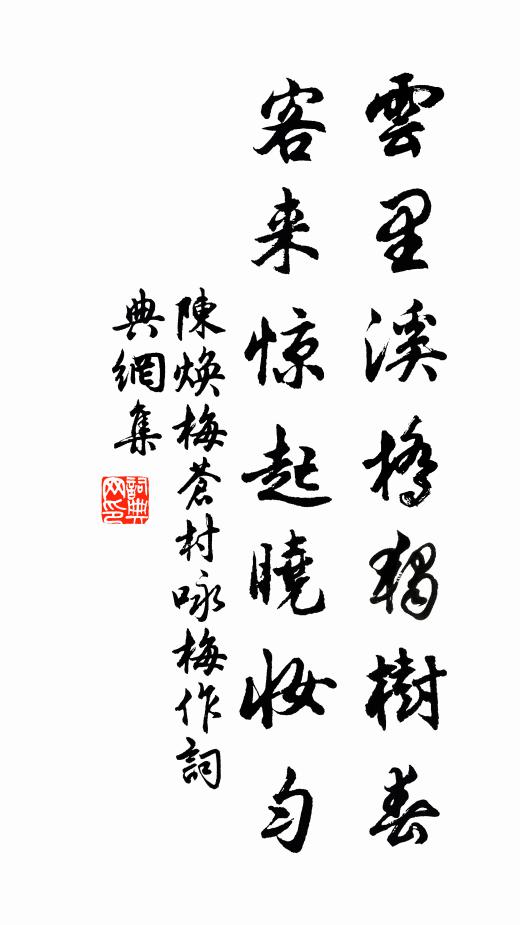 雲里溪橋獨樹春
客来惊起曉妝勻
陳煥梅蒼村咏梅作詞
典網集
詞典
网印